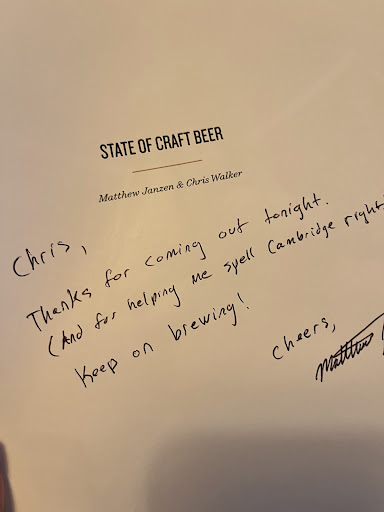 STATE OF CRAFT BEER
Matthew Janzen & Chris Walker
Chris,
Thanks for coming out tonight.
(And for helping me spell Cambridge right
Keep on brewing!
Cheers,
Matthew